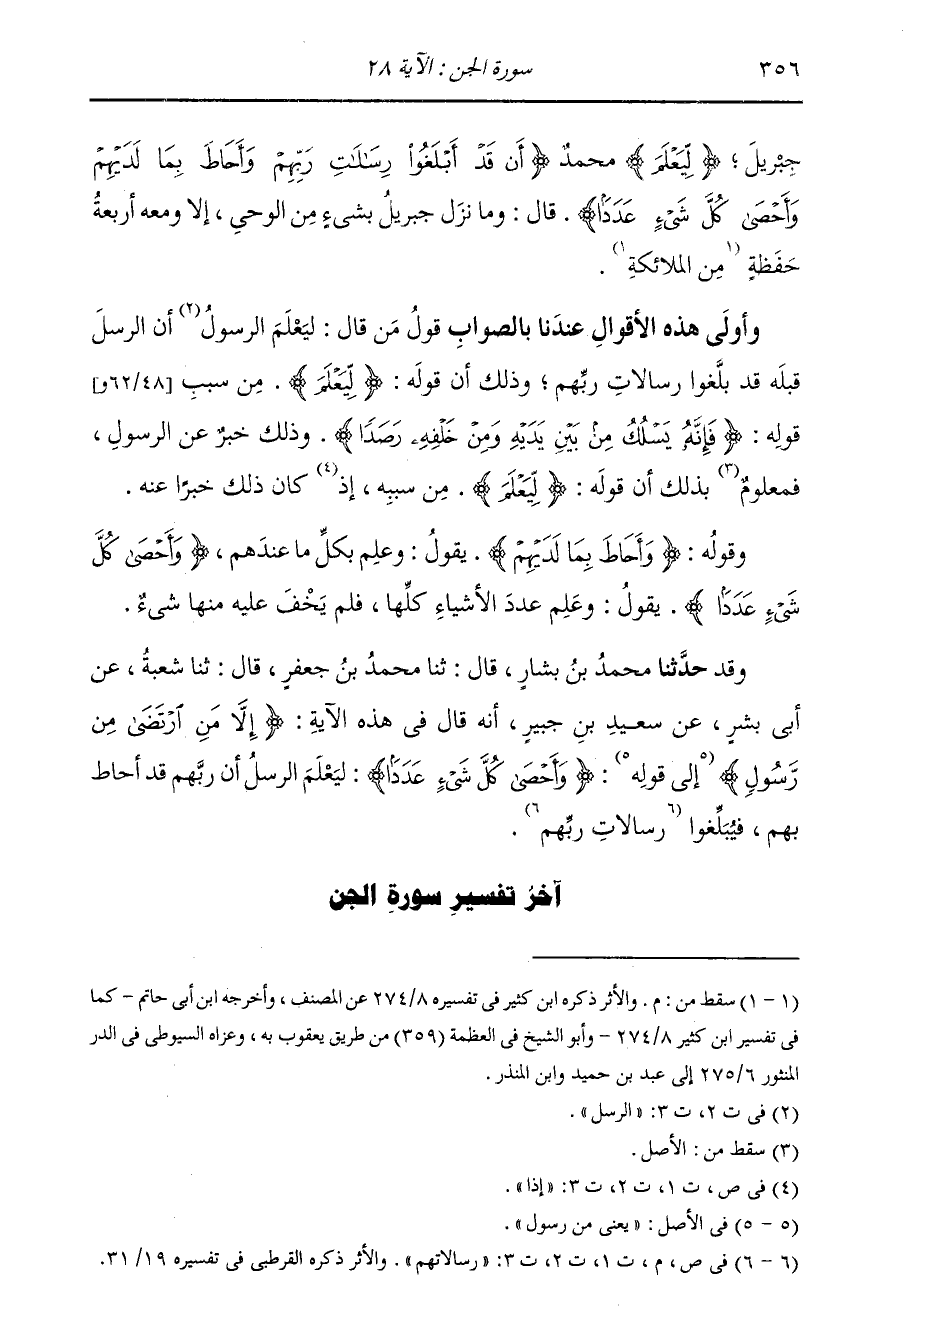 ٣٥٦ سورة الجن : الآية ٢٨
جِبْرِيلَ ؛ ﴿ لِّيَعْلَمَ ﴾ محمدٌ ﴿ أَن قَدْ أَبْلَغُوا۟ رِسَٰلَٰتِ رَبِّهِمْ وَأَحَاطَ بِمَا لَدَيْهِمْ
وَأَحْصَىٰ كُلَّ شَىْءٍ عَدَدًۢا﴾ . قال : وما نزَل جبريلُ بشىءٍ مِن الوحىِ ، إلا ومعه أربعةُ
حَفَظةٍ (١مِن الملائكةِ١) .
وأولَى هذه الأقوالِ عندَنا بالصوابِ قولُ مَن قال : ليَعْلَمَ الرسولُ(٢) أن الرسلَ
قبلَه قد بلَّغوا رسالاتِ ربِّهم ؛ وذلك أن قولَه : ﴿ لِّيَعْلَمَ ﴾ . مِن سببِ [٦٢/٤٨و]
قولِه : ﴿ فَإِنَّهُۥ يَسْلُكُ مِنۢ بَيْنِ يَدَيْهِ وَمِنْ خَلْفِهِۦ رَصَدًا ﴾ . وذلك خبرٌ عن الرسولِ ،
فمعلومٌ(٣) بذلك أن قولَه : ﴿ لِّيَعْلَمَ ﴾ . مِن سببِه ، إذ(٤) كان ذلك خبرًا عنه .
وقولُه : ﴿ وَأَحَاطَ بِمَا لَدَيْهِمْ ﴾ . يقولُ : وعلِم بكلِّ ما عندَهم ، ﴿ وَأَحْصَىٰ كُلَّ
شَىْءٍ عَدَدًۢا ﴾ . يقولُ : وعَلِم عددَ الأشياءِ كلِّها ، فلم يَخْفَ عليه منها شىءٌ .
وقد حدَّثنا محمدُ بنُ بشارٍ ، قال : ثنا محمدُ بنُ جعفرٍ ، قال : ثنا شعبةُ ، عن
أبى بشرٍ ، عن سعيدِ بنِ جبيرٍ ، أنه قال فى هذه الآيةِ : ﴿ إِلَّا مَنِ ٱرْتَضَىٰ مِن
رَّسُولٍ ﴾ (٥إلى قولِه٥) : ﴿ وَأَحْصَىٰ كُلَّ شَىْءٍ عَدَدًۢا﴾ : ليَعْلَمَ الرسلُ أن ربَّهم قد أحاط
بهم ، فيُبَلِّغوا (٦رسالاتِ ربِّهم٦) .
آخرُ تفسيرِ سورةِ الجن
(١ - ١) سقط من : م . والأثر ذكره ابن كثير فى تفسيره ٢٧٤/٨ عن المصنف ، وأخرجه ابن أبى حاتم - كما
فى تفسير ابن كثير ٢٧٤/٨ - وأبو الشيخ فى العظمة (٣٥٩) من طريق يعقوب به ، وعزاه السيوطى فى الدر
المنثور ٢٧٥/٦ إلى عبد بن حميد وابن المنذر .
(٢) فى ت ٢، ت ٣: «الرسل» .
(٣) سقط من : الأصل .
(٤) فى ص ، ت ١، ت ٢، ت ٣: «إذا» .
(٥ - ٥) فى الأصل : «يعنى من رسول» .
(٦ - ٦) فى ص ، م ، ت ١، ت ٢، ت ٣: «رسالاتهم» . والأثر ذكره القرطبى فى تفسيره ١٩/ ٣١.